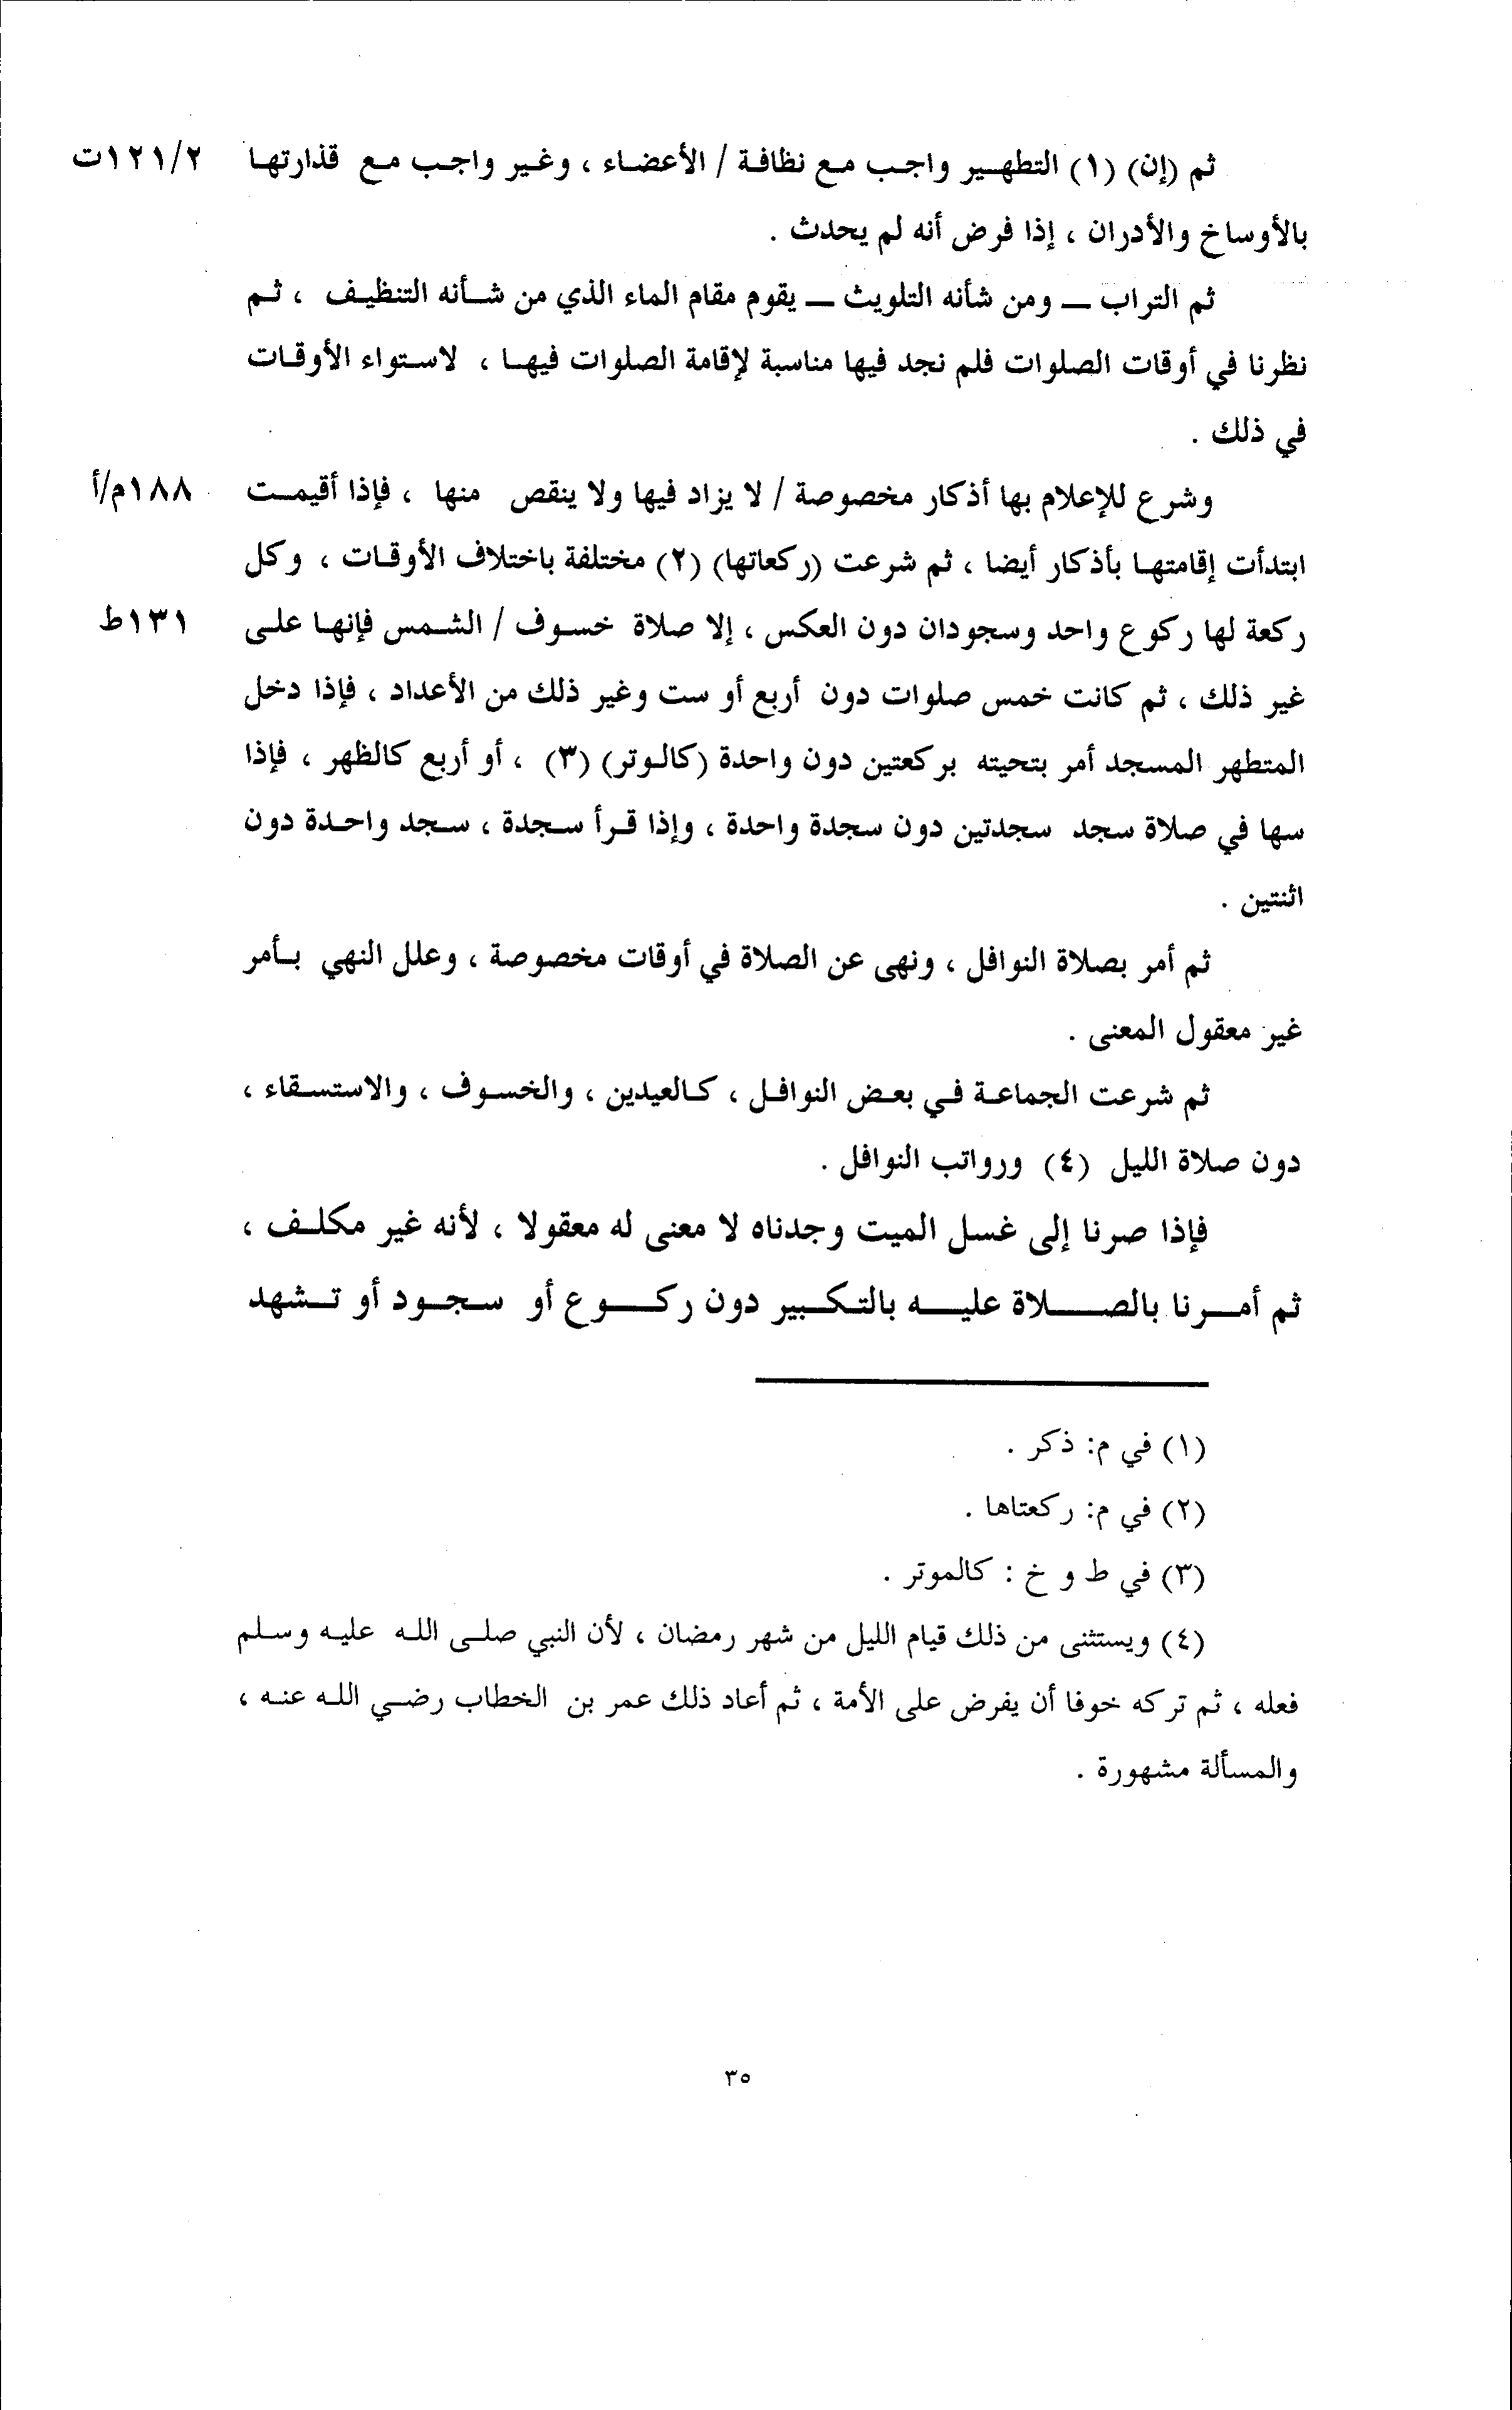 ثم (إن) (١) التطهير واجب مع نظافة / الأعضاء ، وغير واجب مع قذارتها ١٢١/٢ت
بالأوساخ والأدران ، إذا فرض أنه لم يحدث .
ثم التراب ــ ومن شأنه التلويث ــ يقوم مقام الماء الذي من شأنه التنظيف ، ثم
نظرنا في أوقات الصلوات فلم نجد فيها مناسبة لإقامة الصلوات فيها ، لاستواء الأوقات
في ذلك .
وشرع للإعلام بها أذكار مخصوصة / لا يزاد فيها ولا ينقص منها ، فإذا أقيمت ١٨٨م/أ
ابتدأت إقامتها بأذكار أيضا ، ثم شرعت (ركعاتها) (٢) مختلفة باختلاف الأوقات ، وكل
ركعة لها ركوع واحد وسجودان دون العكس ، إلا صلاة خسوف / الشمس فإنها على ١٣١ط
غير ذلك ، ثم كانت خمس صلوات دون أربع أو ست وغير ذلك من الأعداد ، فإذا دخل
المتطهر المسجد أمر بتحيته بركعتين دون واحدة (كالوتر) (٣) ، أو أربع كالظهر ، فإذا
سها في صلاة سجد سجدتين دون سجدة واحدة ، وإذا قرأ سجدة ، سجد واحدة دون
اثنتين .
ثم أمر بصلاة النوافل ، ونهى عن الصلاة في أوقات مخصوصة ، وعلل النهي بأمر
غير معقول المعنى .
ثم شرعت الجماعة في بعض النوافل ، كالعيدين ، والخسوف ، والاستسقاء ،
دون صلاة الليل (٤) ورواتب النوافل .
فإذا صرنا إلى غسل الميت وجدناه لا معنى له معقولا ، لأنه غير مكلف ،
ثم أمرنا بالصلاة عليه بالتكبير دون ركوع أو سجود أو تشهد
(١) في م: ذكر .
(٢) في م: ركعتاها .
(٣) في ط و خ : كالموتر .
(٤) ويستثنى من ذلك قيام الليل من شهر رمضان ، لأن النبي صلى الله عليه وسلم
فعله ، ثم تركه خوفا أن يفرض على الأمة ، ثم أعاد ذلك عمر بن الخطاب رضي الله عنه ،
والمسألة مشهورة .
٣٥